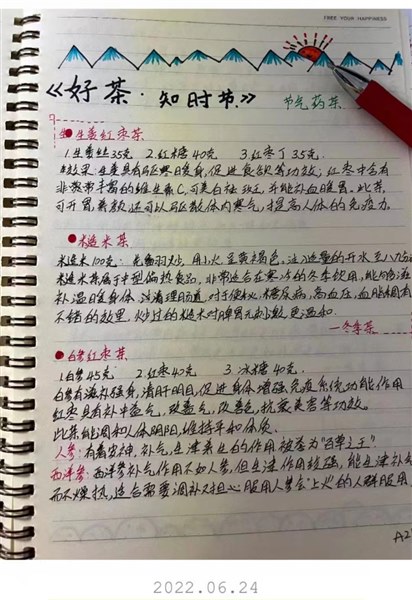 FREE YOUR HAPPINESS
《好茶·知时节》
节气药茶
生姜红枣茶
1.生姜丝35克 2.红糖40克 3.红枣丁35克.
效果:生姜具有驱寒暖身,促进食欲等功效;红枣中含有
非常丰富的维生素C,可美白祛斑,并能补血暖胃.此茶
可开胃养颜还可以驱散体内寒气,提高人体的免疫力.
糙米茶
糙米100克: 用小火至黄褐色,注入适量的开水
糙米茶属于中性偏热食品,非常适合在寒冷的冬季饮用,能
补湿暖身体,清理肠道.对于便秘,糖尿病,高血压,血脂
不错的效果.炒过的糙米对脾胃无刺激,更温和.
—冬季茶
白参红枣茶
1.白参45克 2.红枣40克 3.冰糖40克.
白参有滋补强身,清肝明目,促进身体增强免疫系统功能作用
红枣具有补中益气,改善色,抗衰美容等功效.
此茶能调和人体阴阳,维持平和体质.
人参:有养安神,补气,生津养血的作用被荟为"百草之王"
西洋参:西洋参补气作用不如人参,但生津作用较强,能生津补
而不燥热,适合需要调补又担心服用人参会"上火"的人群服用
A2
2022.06.24